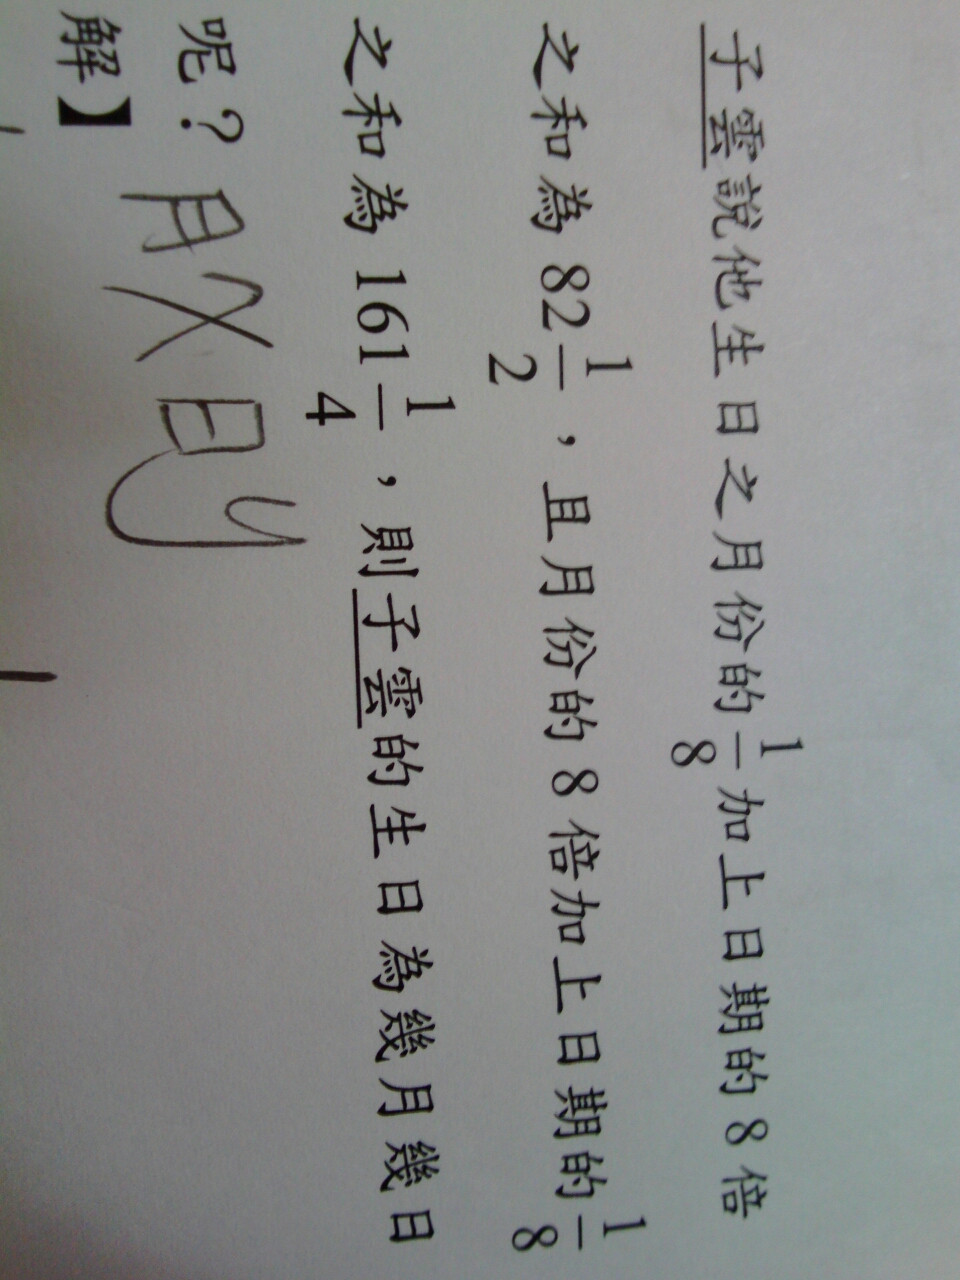 子雲說他生日之月份的1/8加上日期的8倍
之和為 82 1/2，且月份的 8 倍加上日期的1/8
之和為 161 1/4，則子雲的生日為幾月幾日
呢？ 月x 日y
解】